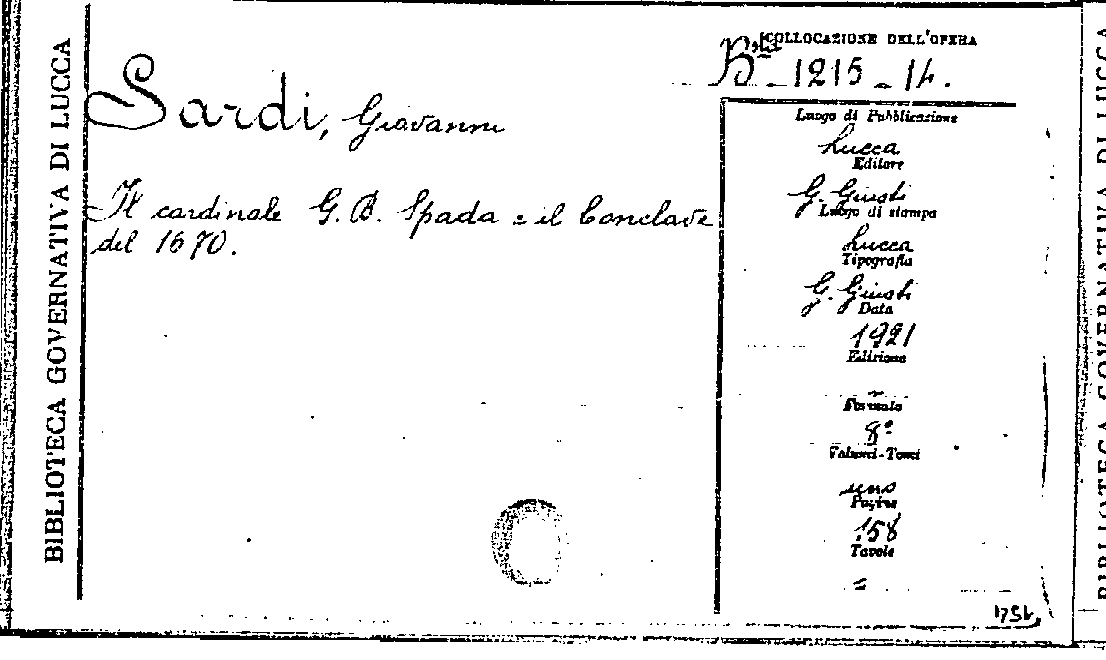 BIBLIOTECA GOVERNATIVA DI LUCCA
Sardi, Giovanni
Il cardinale G. B. Spada e il Conclave
del 1670.
COLLOCAZIONE DELL'OPERA
1215 - 14.
Luogo di Pubblicazione
Lucca
Editore
G. Giusti
Luogo di stampa
Lucca
Tipografia
G. Giusti
Data
1921
Edizione
-
Formato
8°
Volumi-Tomi
uno
Pagine
158
Tavole
-
BIBLIOTECA GOVERNATIVA DI LUCCA